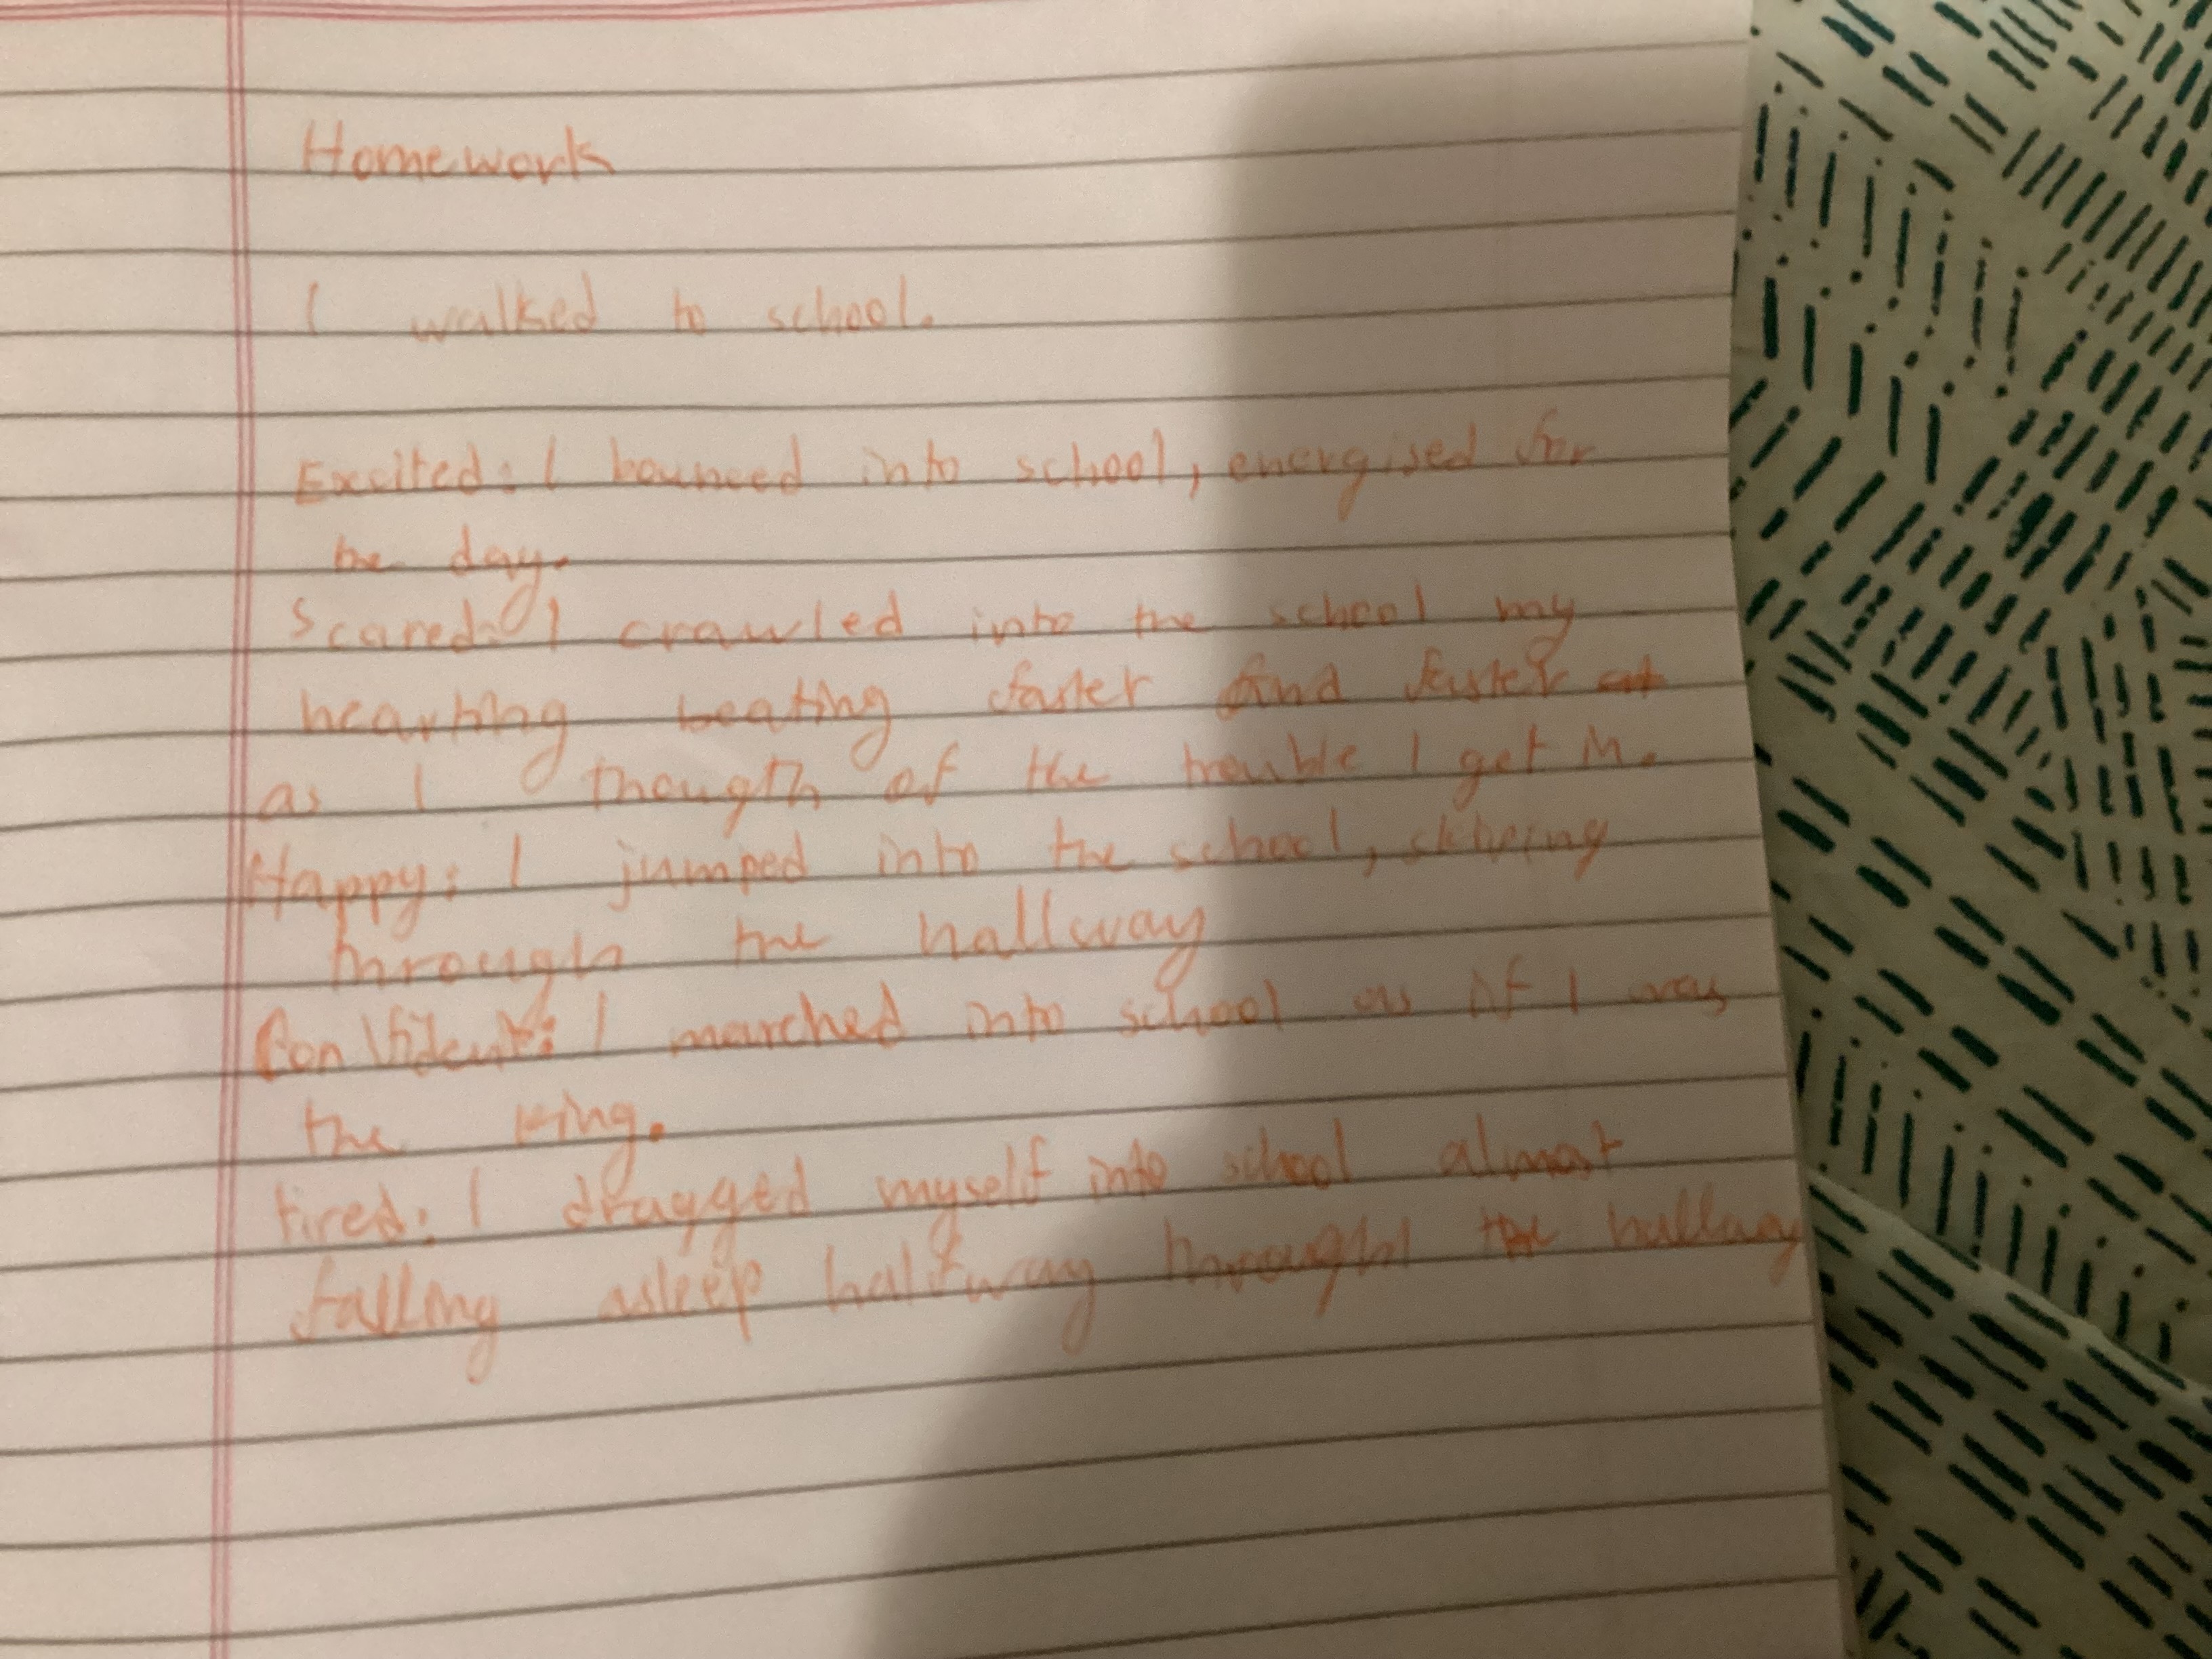 Homework
I walked to school.
Excited: I bounced into school, energised for
the day.
Scared: I crawled into the school my
hearting beating faster and faster
as I thougth of the trouble I get in.
Happy: I jumped into the school, skipping
through the hallway
Confident: I marched into school as if I was
the king.
tired: I dragged myself into school almost
falling asleep halfway through the hallway